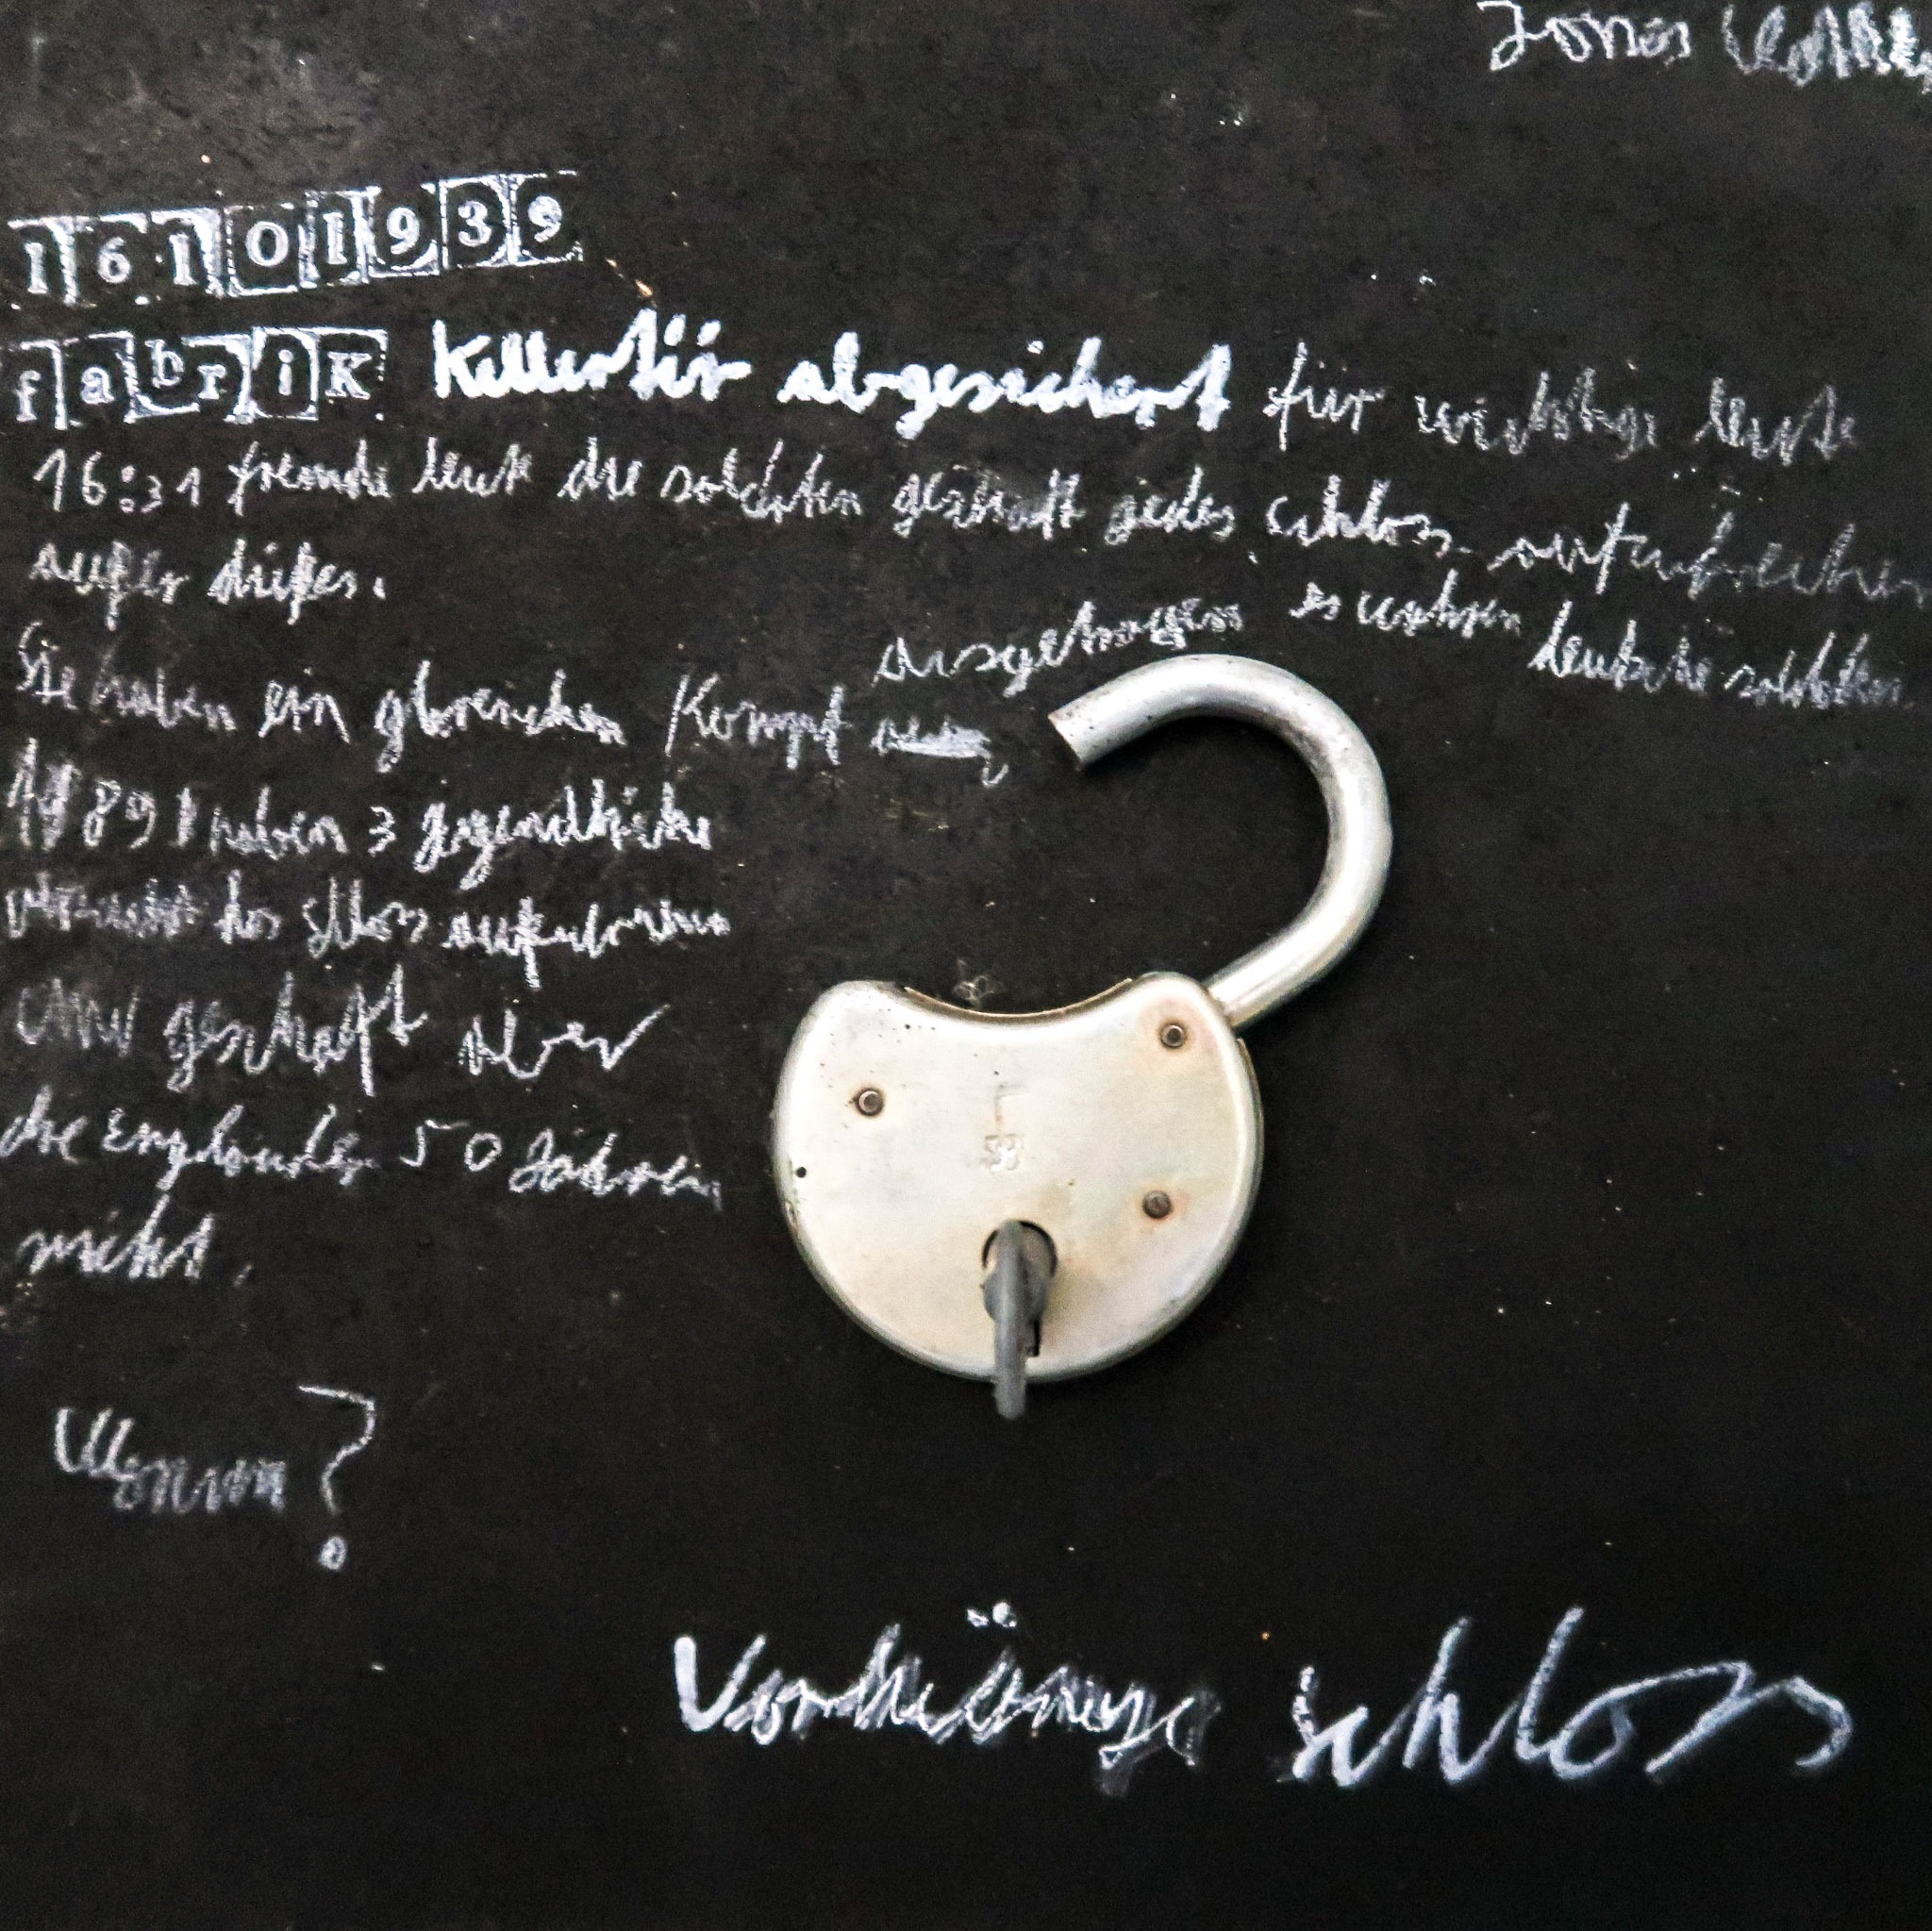 Jonas
16101939
fabriK Kellertür abgesichert für wichtige leute
16:31 fremde leute die soldaten geschafft jedes schloss aufzubrechen
außer dißes.
Sie haben ein gleichen Kampf ausgetragen es wahren deutsche soldaten
1989 haben 3 jugendliche
versucht das schloss aufzubrechen
und geschaft aber
die Engländer 50 Jahren
nicht.
Warum?
Vorhänge schloss
L
38